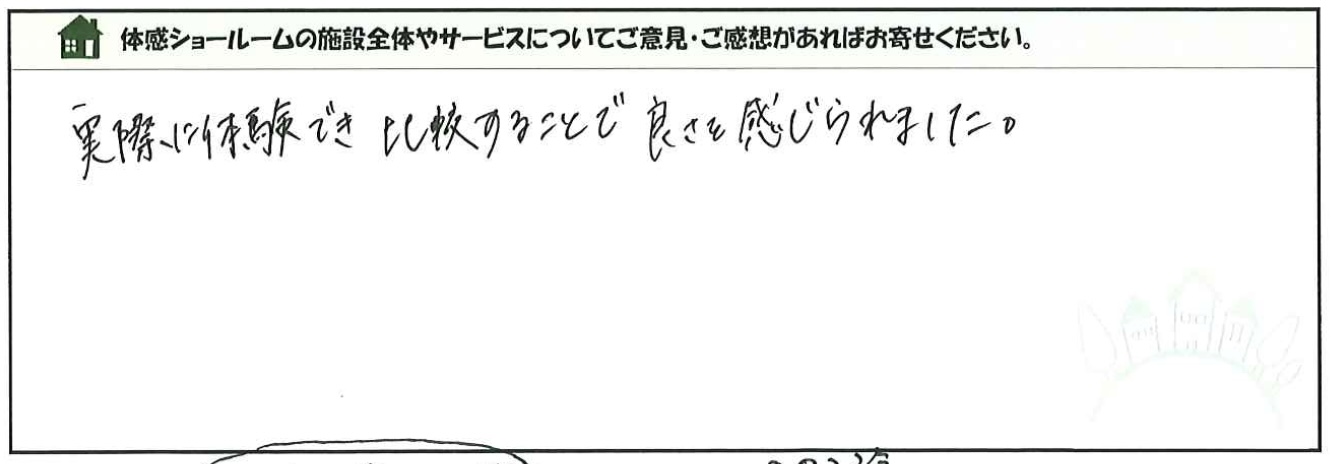 体感ショールームの施設全体やサービスについてご意見・ご感想があればお寄せください。
実際に体験でき 比較することで 良さを感じられました。